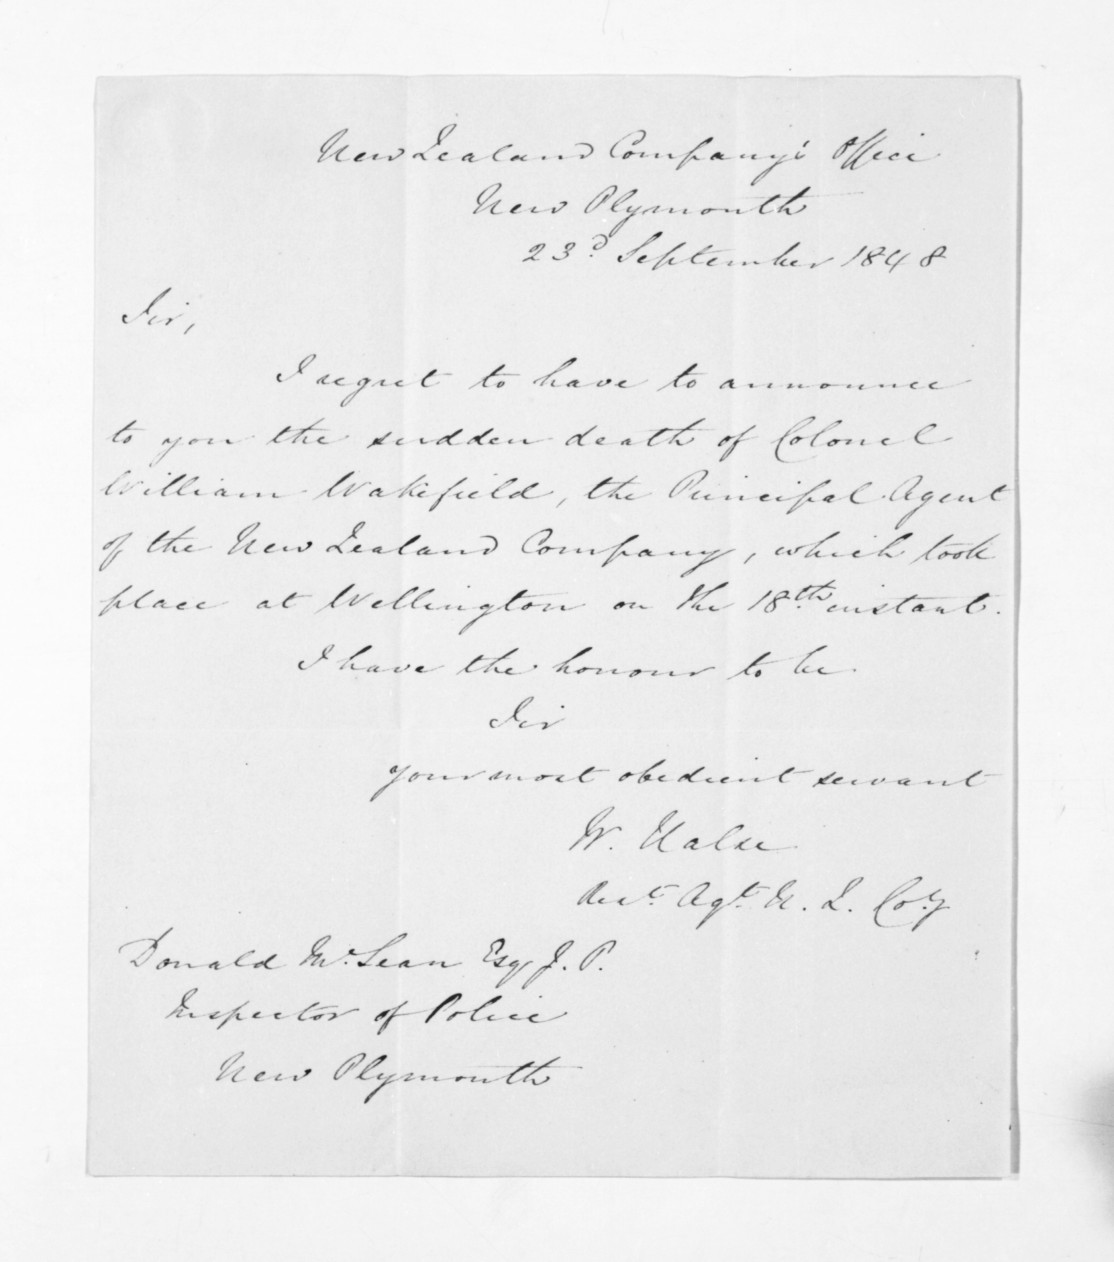 New Zealand Company's Office
New Plymouth
23d. September 1848
Sir,
I regret to have to announce
to you the sudden death of Colonel
William Wakefield, the Principal Agent
of the New Zealand Company, which took
place at Wellington on the 18th instant.
I have the honour to be
Sir
your most obedient servant
W. Halse
Rest. Agt. N. Z. Coy
Donald McLean Esq. J. P.
Inspector of Police
New Plymouth